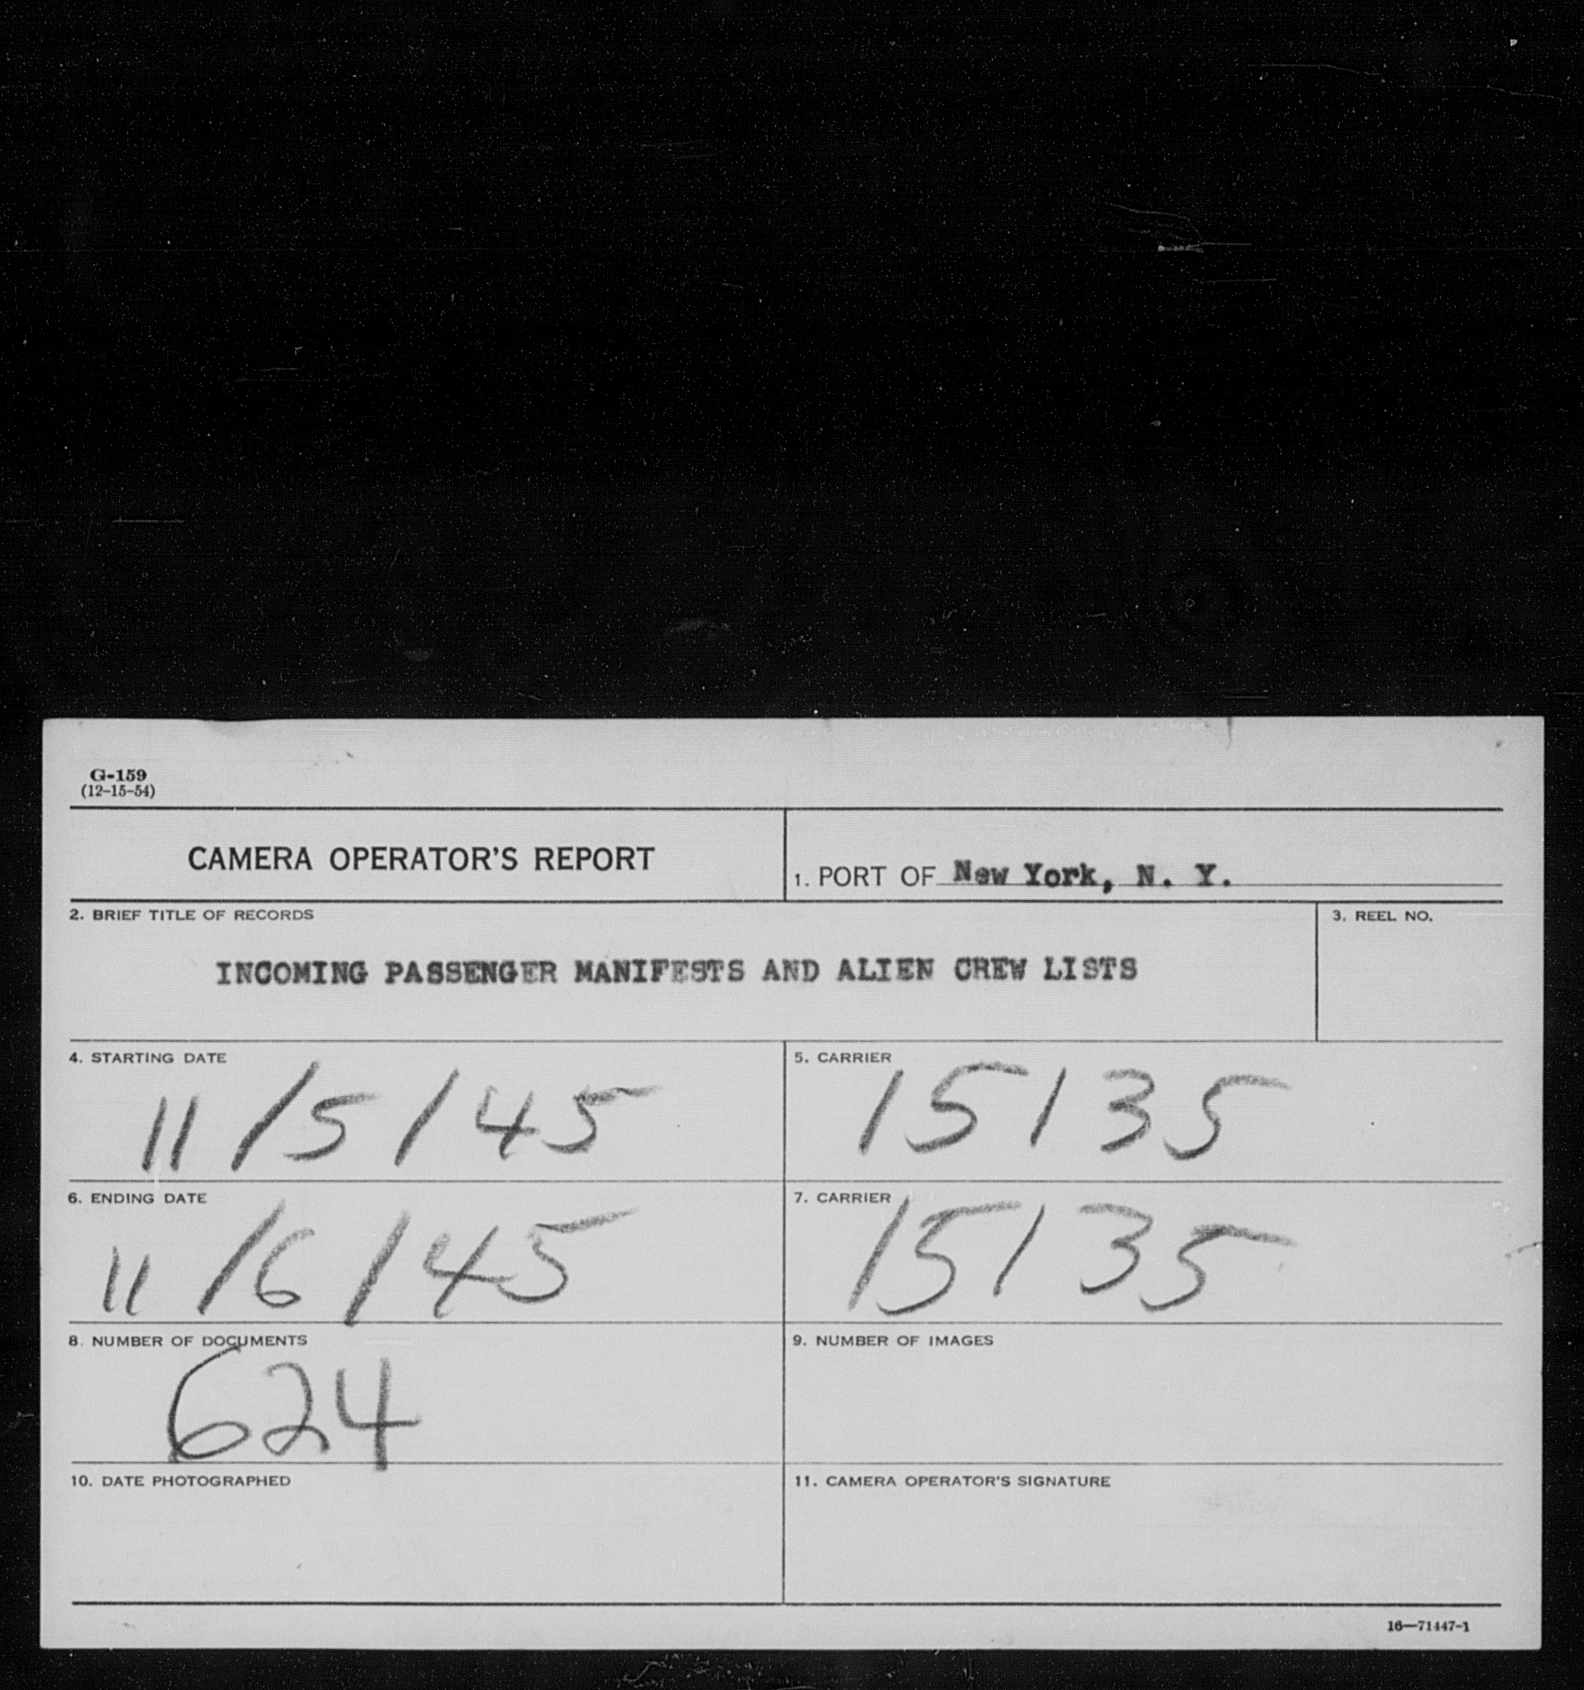 G-159
(12-15-54)
CAMERA OPERATOR'S REPORT
1. PORT OF New York, N. Y.
2. BRIEF TITLE OF RECORDS
3. REEL NO.
INCOMING PASSENGER MANIFESTS AND ALIEN CREW LISTS
4. STARTING DATE
11/5/45
5. CARRIER
15135
6. ENDING DATE
11/6/45
7. CARRIER
15135
8. NUMBER OF DOCUMENTS
624
9. NUMBER OF IMAGES
10. DATE PHOTOGRAPHED
11. CAMERA OPERATOR'S SIGNATURE
16—71447-1